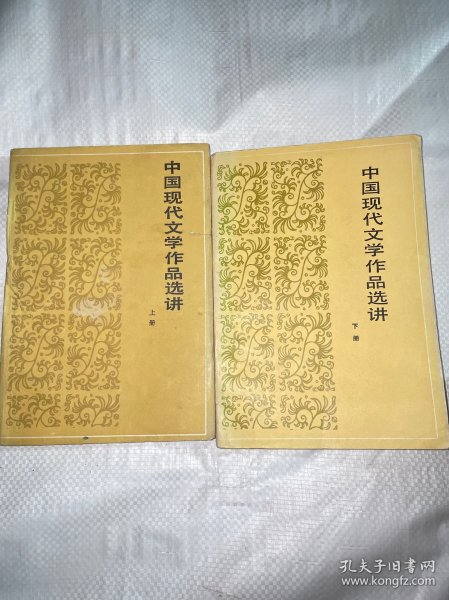 中国现代文学作品选讲
上册
中国现代文学作品选讲
下册
孔夫子旧书网
www.kongfz.com